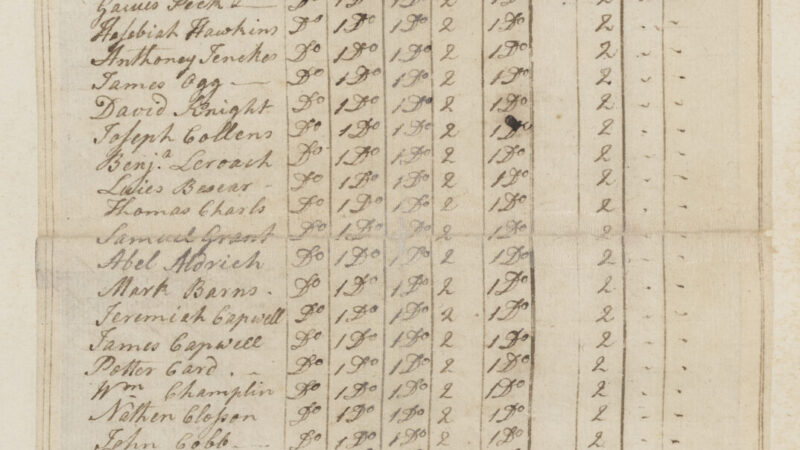 Peck Do 1 Do 1 Do 2 1 Do 2
Hesebiah Hawkins Do 1 Do 1 Do 2 1 Do 2
Anthoney Jenckes Do 1 Do 1 Do 2 1 Do 2
James Ogg Do 1 Do 1 Do 2 1 Do 2
David Knight Do 1 Do 1 Do 2 1 Do 2
Joseph Collens Do 1 Do 1 Do 2 1 Do 2
Benja. Leroach Do 1 Do 1 Do 2 1 Do 2
Do 1 Do 1 Do 2 1 Do 2
Thomas Charls Do 1 Do 1 Do 2 1 Do 2
Samuel Grant Do 1 Do 1 Do 2 1 Do 2
Abel Aldrich Do 1 Do 1 Do 2 1 Do 2
Mark Barns Do 1 Do 1 Do 2 1 Do 2
Jeremiah Capwell Do 1 Do 1 Do 2 1 Do 2
James Capwell Do 1 Do 1 Do 2 1 Do 2
Potter Card Do 1 Do 1 Do 2 1 Do 2
Wm Champlin Do 1 Do 1 Do 2 1 Do 2
Nathen Closson Do 1 Do 1 Do 2 1 Do 2
John Cobb Do 1 Do 1 Do 2 1 Do 2